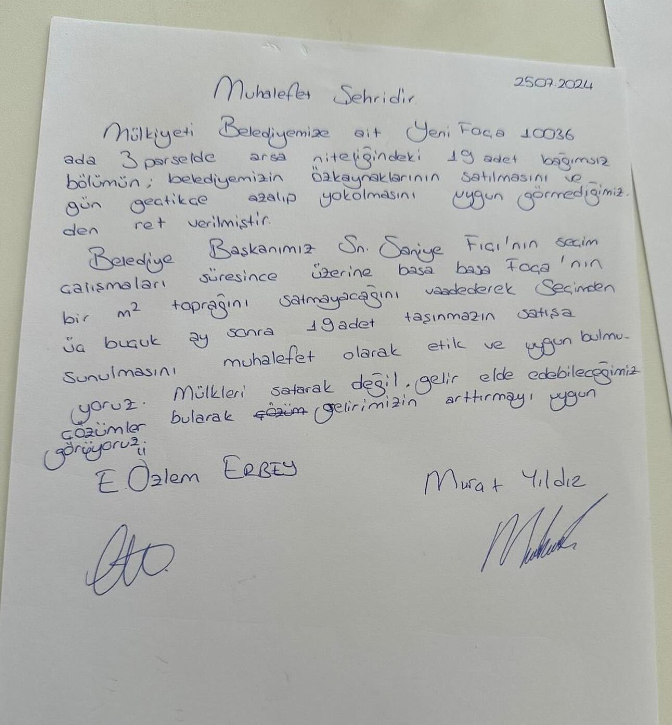 25.07.2024
Muhalefet Şehridir
Mülkiyeti Belediyemize ait Yeni Foça 10036
ada 3 parselde arsa niteliğindeki 19 adet bağımsız
bölümün; belediyemizin özkaynaklarının satılmasını ve
gün geçtikçe azalıp yokolmasını uygun görmediğimiz-
den ret verilmiştir.
Belediye Başkanımız Sn. Saniye Fıçı'nın seçim
çalışmaları süresince üzerine basa basa Foça'nın
bir m² toprağını satmayacağını vaadederek Seçimden
üç buçuk ay sonra 19 adet taşınmazın satışa
sunulmasını muhalefet olarak etik ve uygun bulmu-
yoruz. Mülkleri satarak değil, gelir elde edebileceğimiz
çözümler bularak çözüm gelirimizin arttırmayı uygun
görüyoruz.
E. Özlem ERBEY
Murat Yıldız